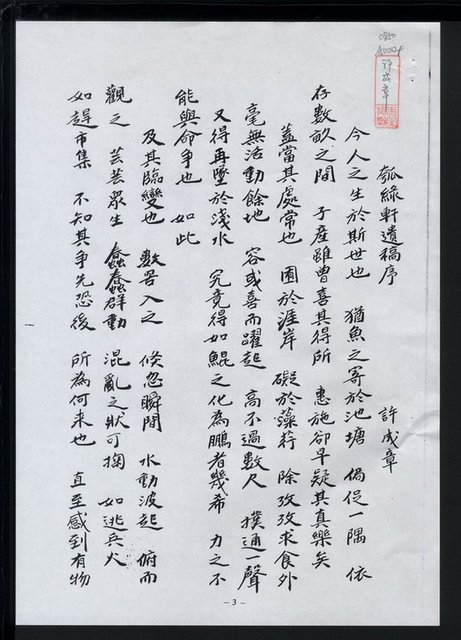 0850
瓠綠軒遺稿序　許成章
今人之生於斯世也　猶魚之寄於池塘　侷促一隅　依
存數畝之間　子產雖曾喜其得所　惠施卻早疑其真樂矣
蓋當其處常也　囿於涯岸　礙於藻荇　除孜孜求食外
毫無活動餘地　容或喜而躍起　高不過數尺　撲通一聲
又得再墜於淺水　究竟得如鯤之化為鵬者幾希　力之不
能與命爭也　如此
及其臨變也　數罟入之　倏忽瞬間　水動波起　俯而
觀之　芸芸眾生　蠢蠢群動　混亂之狀可掬　如逃兵火
如趕市集　不知其爭先恐後　所為何來也　直至感到有物
- 3 -